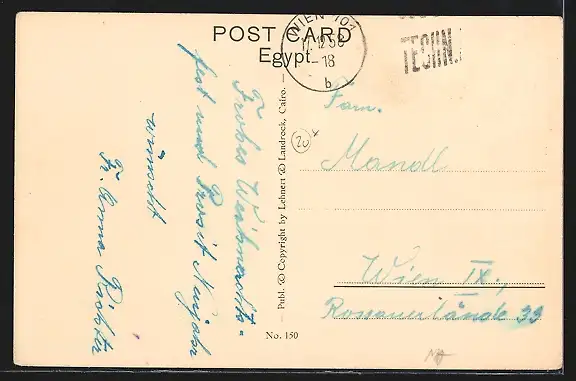 POST CARD
Egypt.
WIEN 101
17.12.58
-18
b
TECHN.
Frohes Weihnachts-
fest und Prosit Neujahr
wünscht
Fr. Anna Richter
Publ. & Copyright by Lehnert & Landrock, Cairo.
20
Fam.
Mandl
Wien IX.,
Rossauerlände 33
No. 150